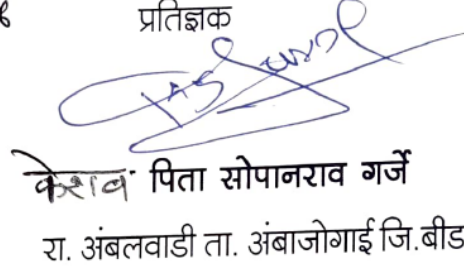 प्रतिज्ञक
केशव पिता सोपानराव गर्जे
रा. अंबलवाडी ता. अंबाजोगाई जि.बीड